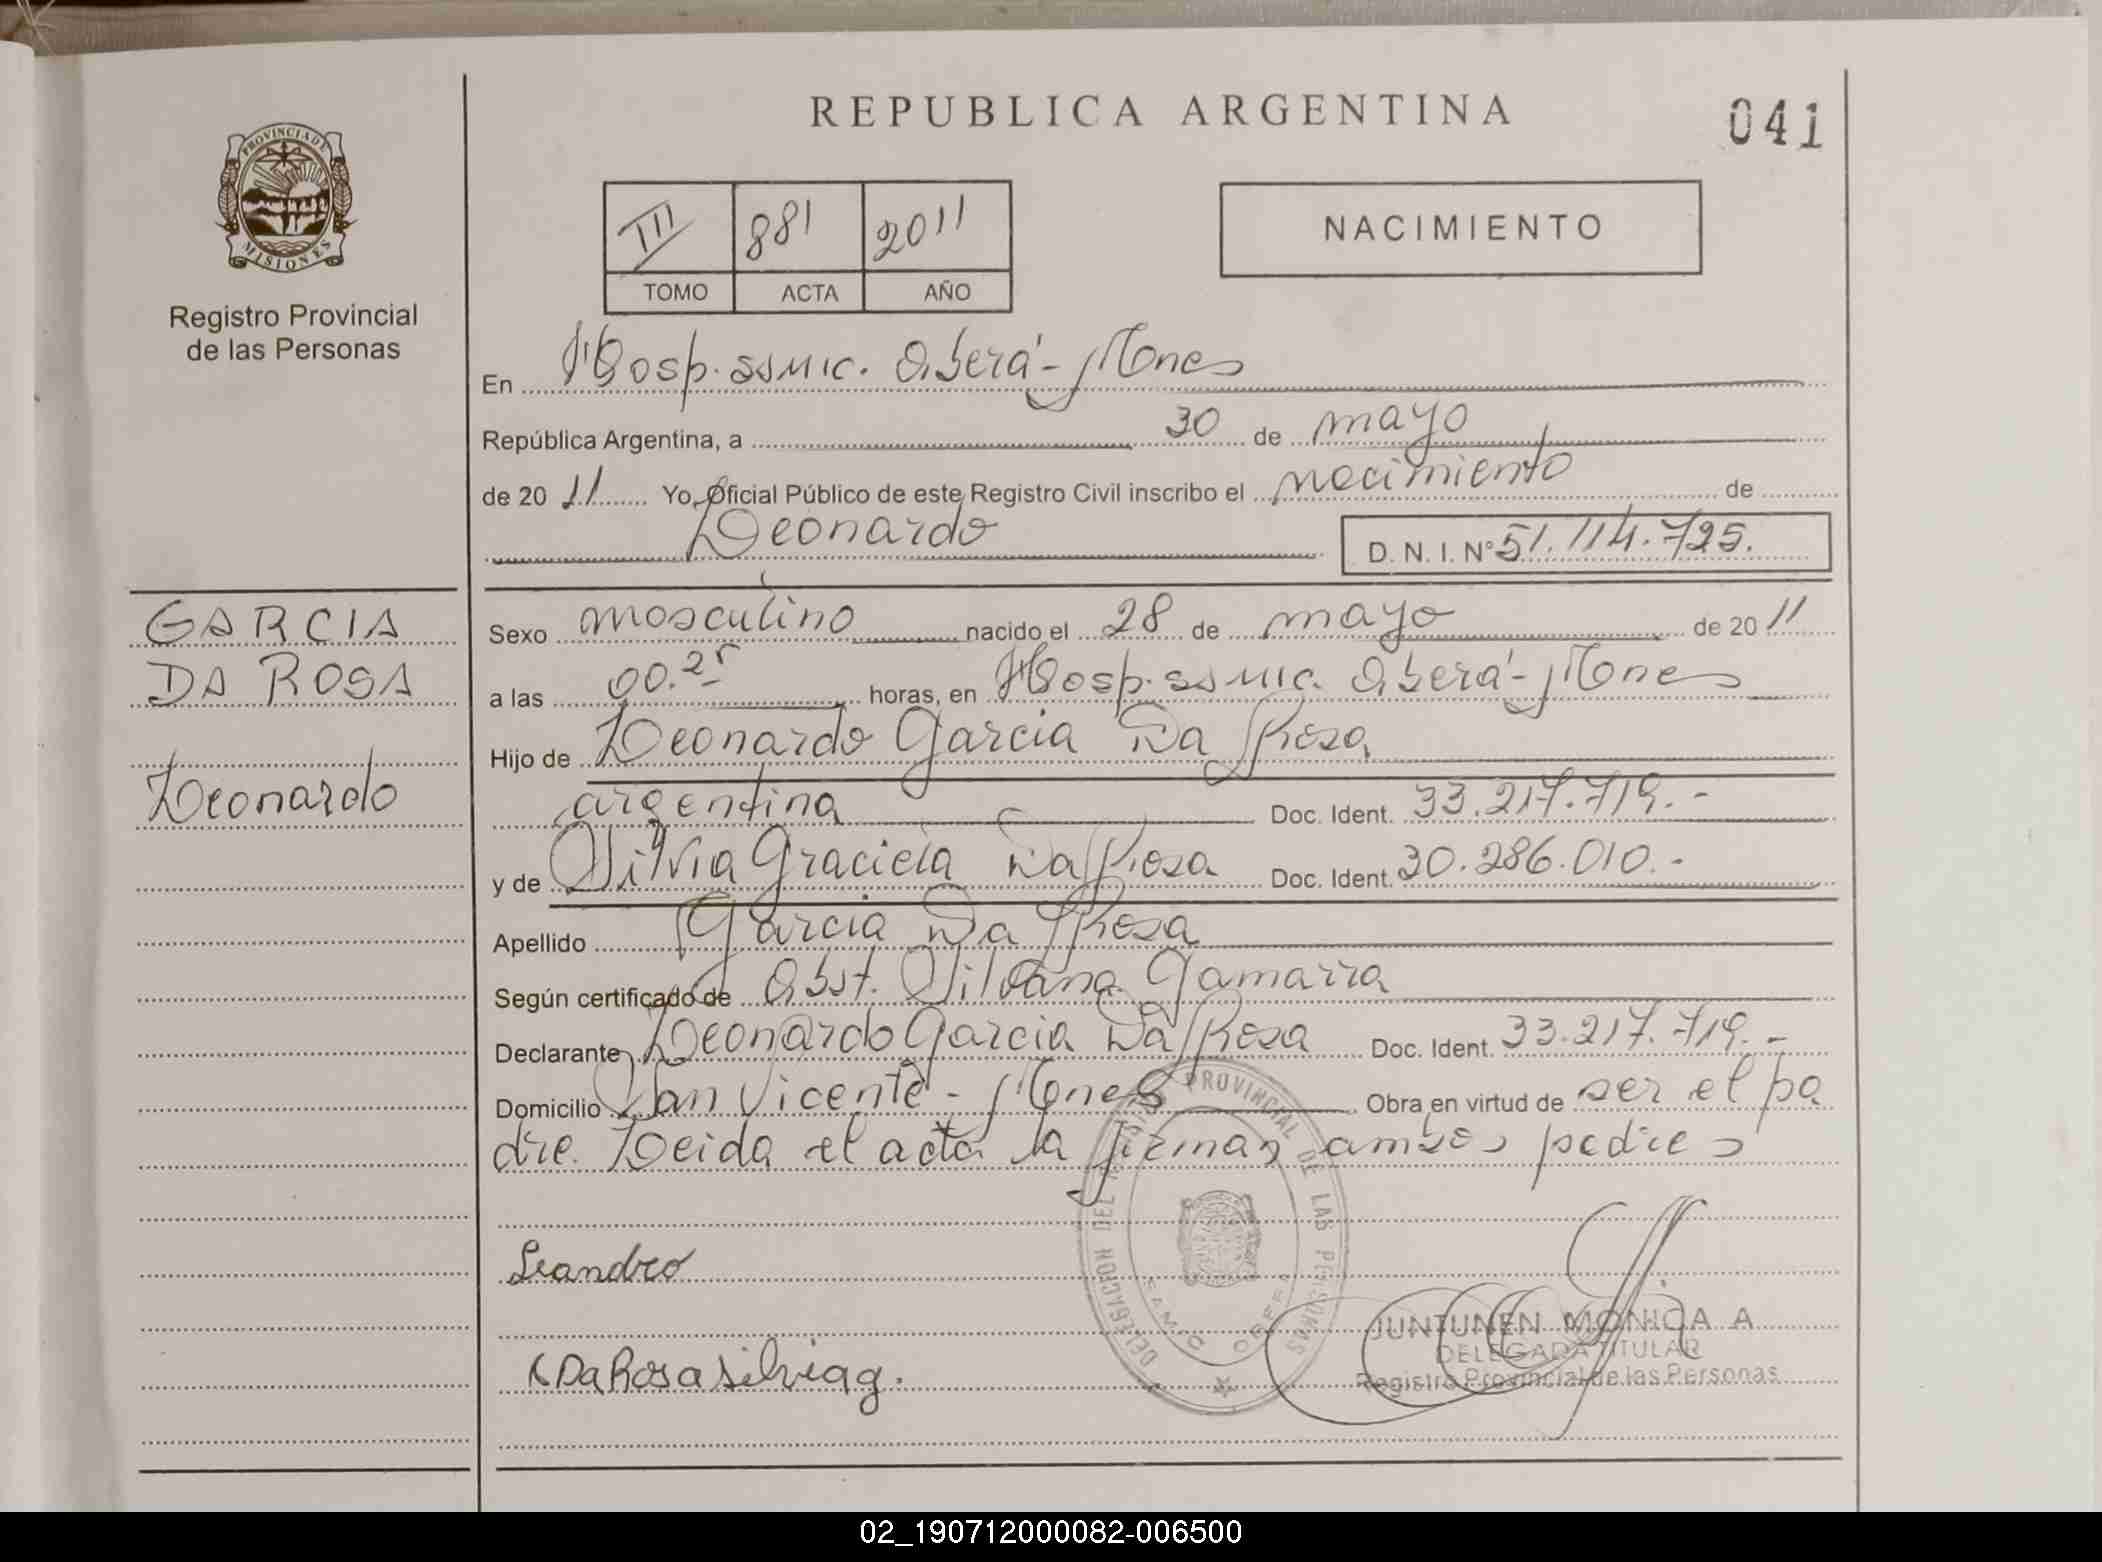 REPUBLICA ARGENTINA
041
PROVINCIA DE
MISIONES
Registro Provincial
de las Personas
III 881 2011
TOMO ACTA AÑO
NACIMIENTO
En Hosp. SSMIC. Oberá - Mnes
República Argentina, a 30 de mayo
de 2011 Yo, Oficial Público de este Registro Civil inscribo el nacimiento de
Leonardo D. N. I. N° 51.114.725.
GARCIA
DA ROSA
Leonardo
Sexo masculino nacido el 28 de mayo de 2011
a las 00.25 horas, en Hosp. SSMIC. Oberá - Mnes
Hijo de Leonardo Garcia Da Rosa
argentina Doc. Ident. 33.217.719.-
y de Silvia Graciela Da Rosa Doc. Ident. 30.286.010.-
Apellido Garcia Da Rosa
Según certificado de Obst. Silvana Gamarra
Declarante Leonardo Garcia Da Rosa Doc. Ident. 33.217.719.-
Domicilio San Vicente - Mnes Obra en virtud de ser el pa
dre. Leida el acta la firman ambos padres
Leandro
Da Rosa Silvia g.
DELEGACION DEL REGISTRO PROVINCIAL DE LAS PERSONAS
SAMIC OBERA
JUNTUNEN MONICA A
DELEGADA TITULAR
Registro Provincial de las Personas
02_190712000082-006500